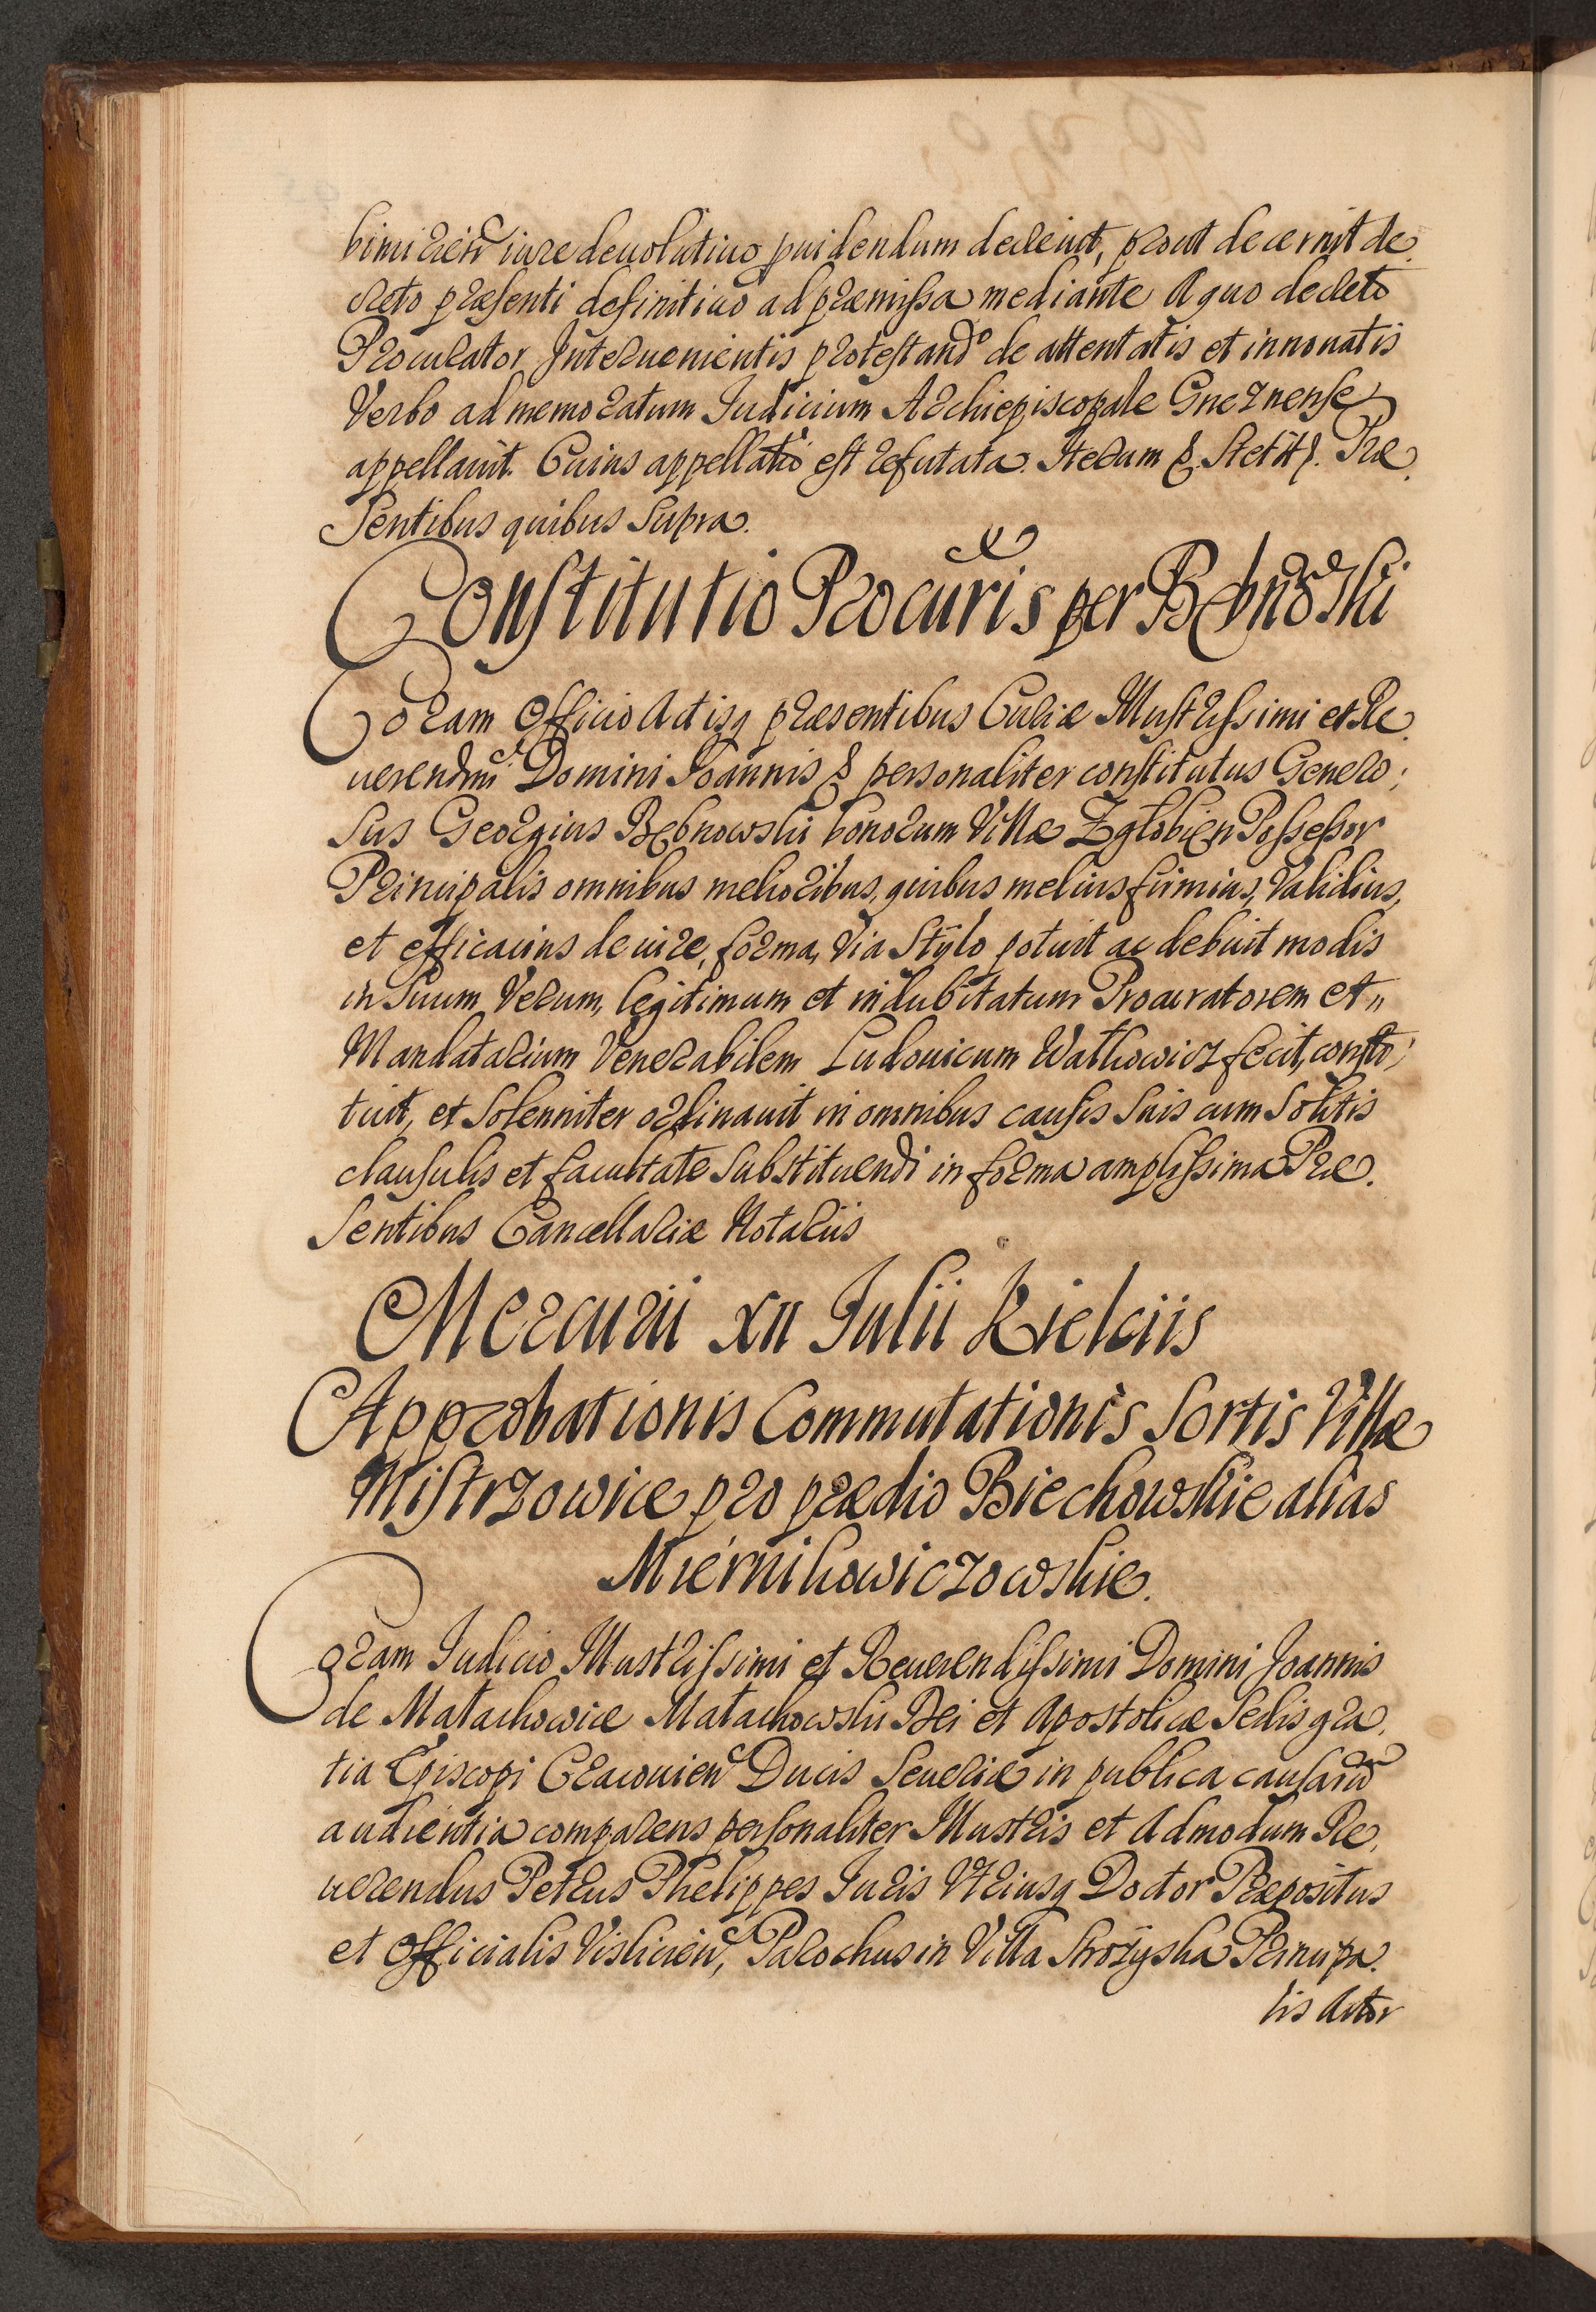 bimirień iure deuolutiuo puidendum decreuit, prout decernit de.
creto præsenti definitiuo ad præmissa mediante A quo decreto
Procurator Interuenientis protestando de attentatis et innouatis
Verbo ad memoratum Iudicium Archiepiscopale Gneznense
appellauit. Cuius appellatio est refutata. Iterum &. Stetit &. Præ.
sentibus quibus Supra.
Constitutio Procuris per Bębnowski
Coram Officio Actisq præsentibus Curiæ Illustrissimi et Re.
uerendmi Domini Joannis & personaliter constitutus Genero:
sus Georgius Bębnowski bonorum Villæ Zgłobień Possessor
Principalis omnibus melioribus, quibus melius firmius, Validius,
et efficacius de iure, forma, Via Stylo potuit ac debuit modis
in Suum Verum, legitimum et indubitatum Procuratorem et"
Mandatarium Venerabilem Ludouicum Wathowicz fecit, consti:
tuit, et Solenniter ordinauit in omnibus causis Suis cum Solitis
clausulis et facultate Substituendi in forma amplissima Præ.
sentibus Cancellariæ Notariis
Mercurii XII Iulii Kielciis
Approbationis Commutationis Sortis Villæ
Mistrzowice pro prædio Biechowskie alias
Miernikowiczowskie.
Coram Iudicio Illustrissimi et Reuerendissimi Domini Joannis
de Małachowice Małachowski Dei et Apostolicæ Sedis gra.
tia Episcopi Cracouień Ducis Seueriæ in publica causarū
audientia comparens personaliter Illustris et Admodum Re.
uerendus Petrus Phelippes Iuris Vtriusq Doctor Præpositus
et Officialis Visliciēn, Parochus in Villa Strożyska Principa.
lis Actor